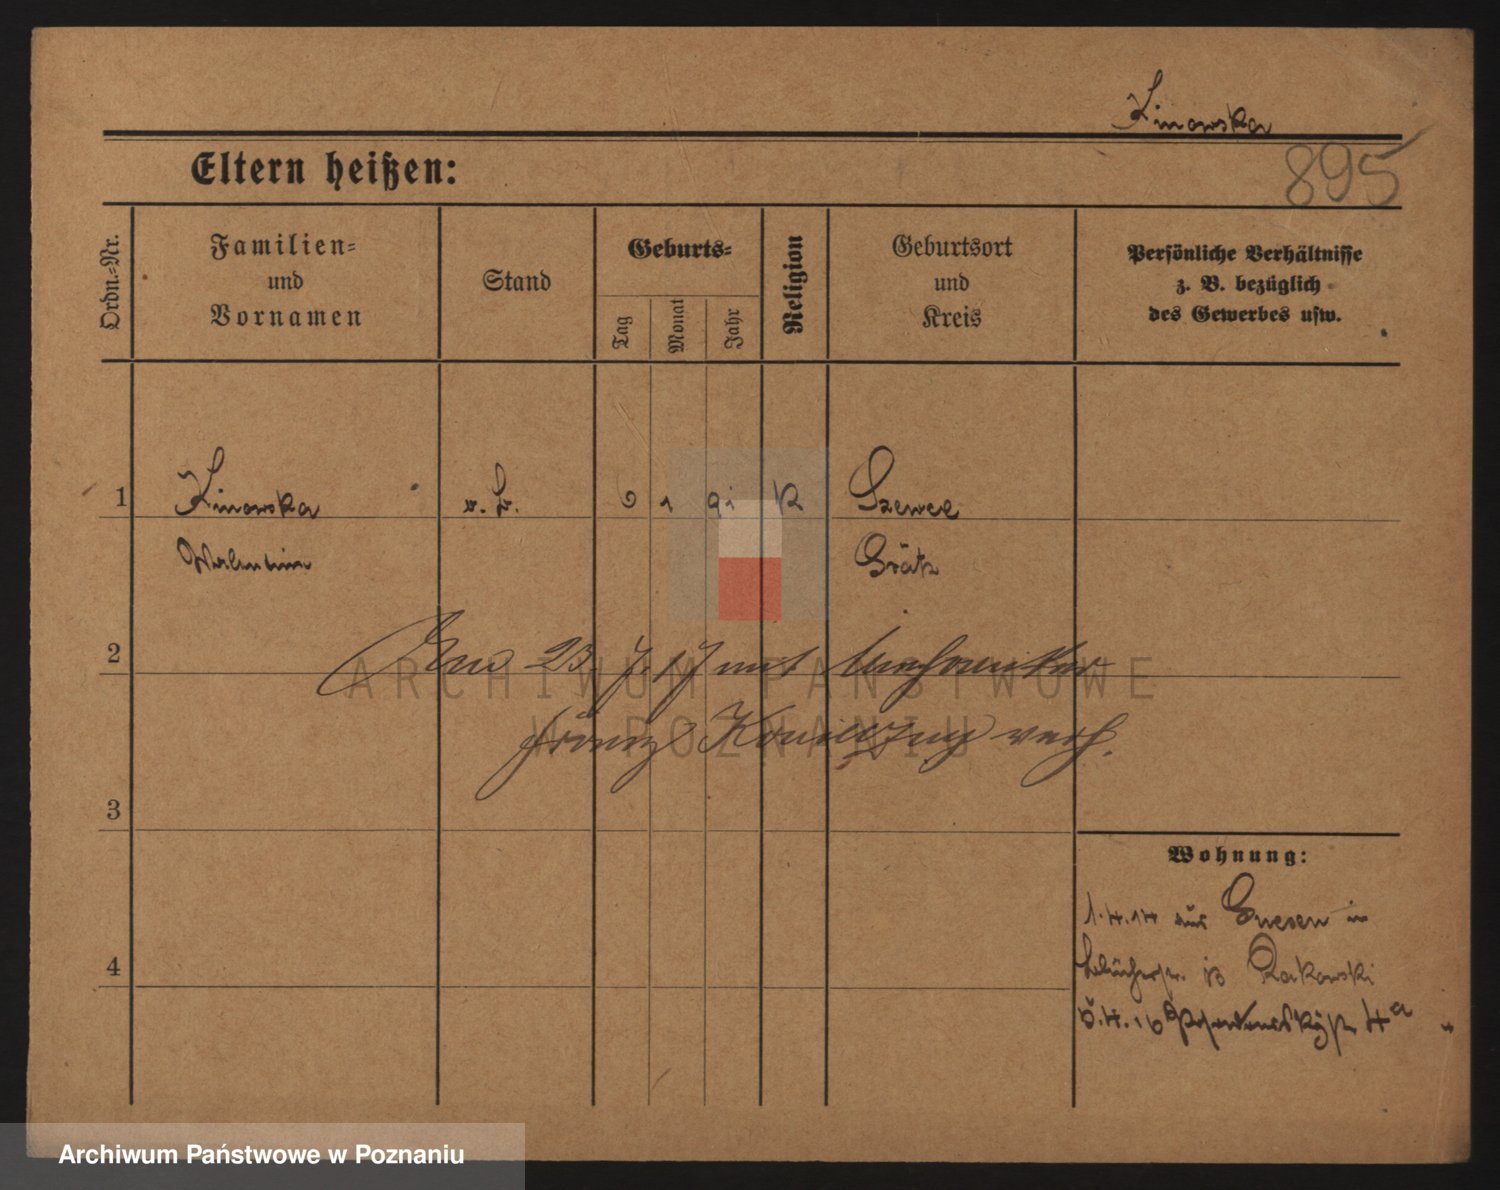 Kinowska
895
Eltern heißen:
Ordn.=Nr.
Familien=
und
Vornamen
Stand
Geburts=
Tag
Monat
Jahr
Religion
Geburtsort
und
Kreis
Persönliche Verhältnisse
z. B. bezüglich
des Gewerbes usw.
1
Kinowska
6 1 91 K
Szewce
Grätz
2
23. 7. 17 mit
Franz verh.
3
4
Wohnung:
1.4.14 aus Gnesen in
13 Rakowski
5.4.16 4a
ARCHIWUM PAŃSTWOWE
W POZNANIU
Archiwum Państwowe w Poznaniu